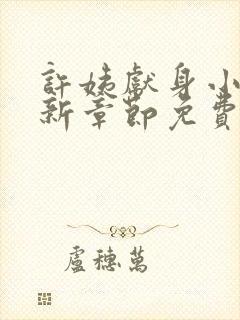 許姨獻身小
新章節免費
盧穗萬